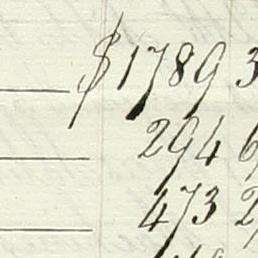 $1789 3
294 6
473 2